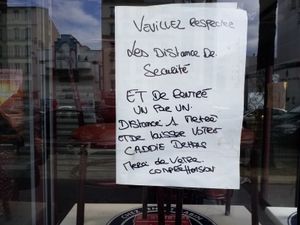 Veuillez Respectee
Les Distance De
Securité
ET De Rentré
UN PAR UN.
Distance 1 Metre
ET De laisser Votre
CADDIE Dehors
Merci de Votre
COMPREHENSION